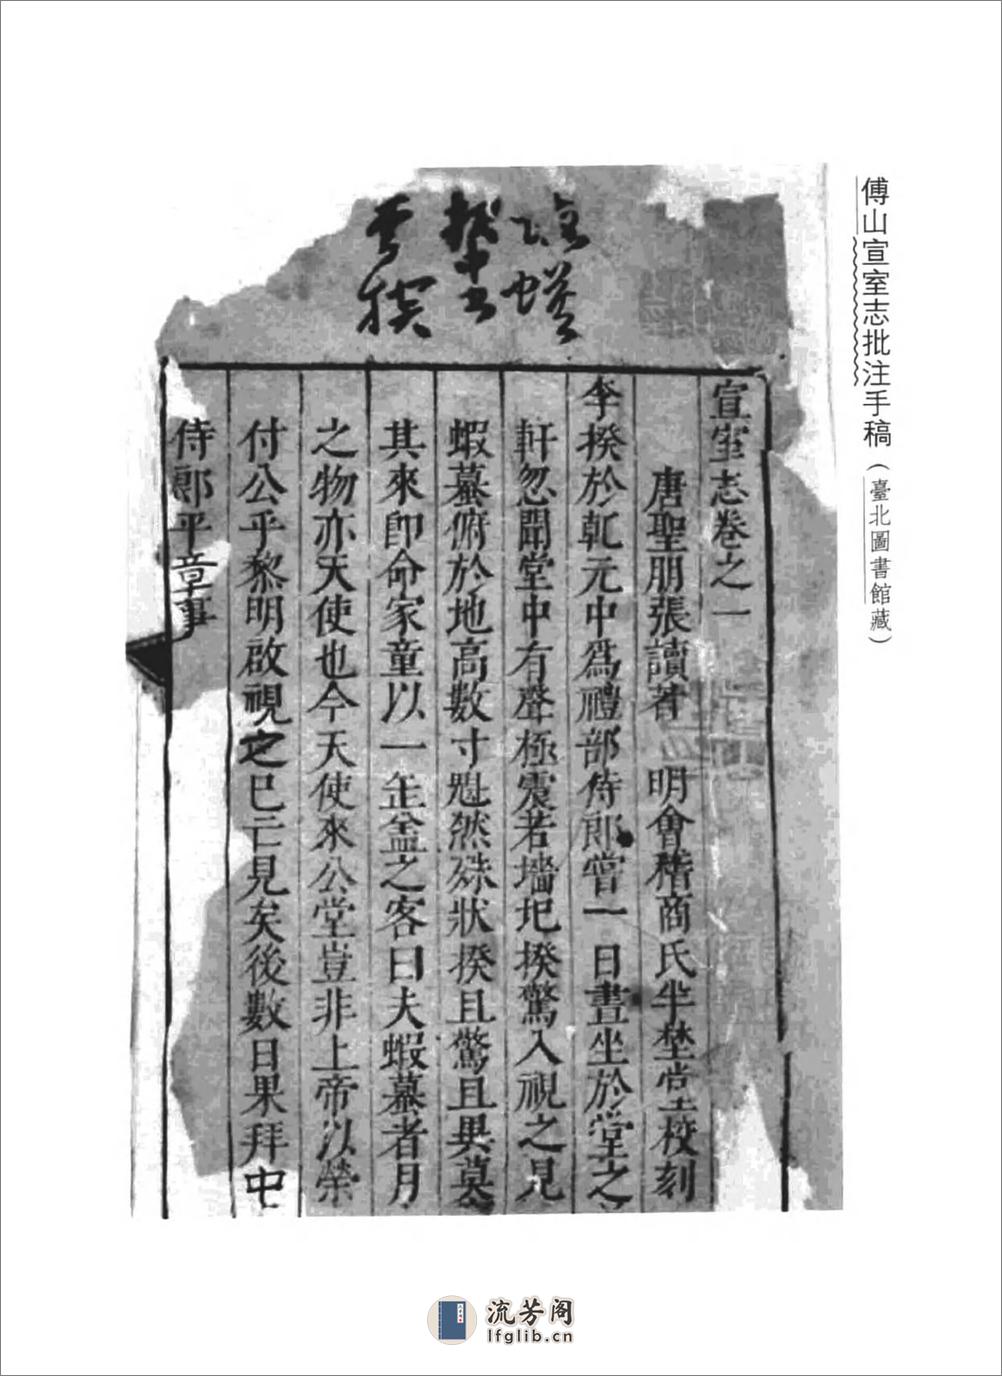 傅山宣室志批注手稿（臺北圖書館藏）
宣室志卷之一
唐聖朋張讀著　明會稽商氏半埜堂校刻
李揆於乹元中爲禮部侍郎嘗一日晝坐於堂之
軒忽聞堂中有聲極震若墻圯揆驚入視之見
蝦蟇俯於地高數寸魁然殊狀揆且驚且異莫
其來即命家童以一缶盆之客曰夫蝦蟇者月
之物亦天使也今天使來公堂豈非上帝以榮
付公乎黎明啟視之已亡見矣後數日果拜中
侍郎平章事
流芳阁
lfglib.cn